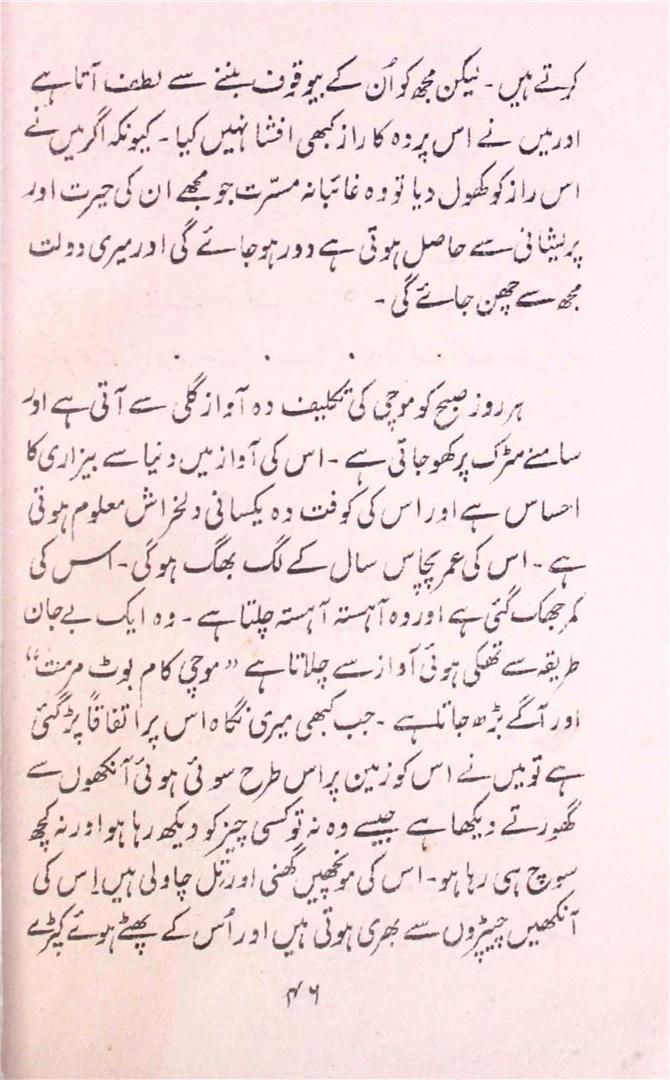 کرتے ہیں۔ لیکن مجھ کو اُن کے بیوقوف بننے سے لطف آتا ہے
اور میں نے اس پردہ کا راز کبھی افشا نہیں کیا۔ کیونکہ اگر میں نے
اس راز کو کھول دیا تو وہ غائبانہ مسرّت جو مجھے ان کی حیرت اور
پریشانی سے حاصل ہوتی ہے دور ہو جائے گی اور میری دولت
مجھ سے چھن جائے گی۔
. . . .
ہر روز صبح کو موچی کی تکلیف دہ آواز گلی سے آتی ہے اور
سامنے سڑک پر کھو جاتی ہے۔ اس کی آواز میں دنیا سے بیزاری کا
احساس ہے اور اس کی کوفت دہ یکسانی دلخراش معلوم ہوتی
ہے۔ اس کی عمر پچاس سال کے لگ بھگ ہوگی۔ اس کی
کمر جھک گئی ہے اور وہ آہستہ آہستہ چلتا ہے۔ وہ ایک بے جان
طریقہ سے تھکی ہوئی آواز سے چلاتا ہے "موچی کام بوٹ مرمت"
اور آگے بڑھ جاتا ہے۔ جب کبھی میری نگاہ اس پر اتفاقاً پڑ گئی
ہے تو میں نے اس کو زمین پر اس طرح سوئی ہوئی آنکھوں سے
گھورتے دیکھا ہے جیسے وہ نہ تو کسی چیز کو دیکھ رہا ہو اور نہ کچھ
سوچ ہی رہا ہو۔ اس کی مونچھیں گھنی اور تِل چاولی ہیں اِس کی
آنکھیں چیپڑوں سے بھری ہوتی ہیں اور اُس کے پھٹے ہوئے کپڑے
۴۶